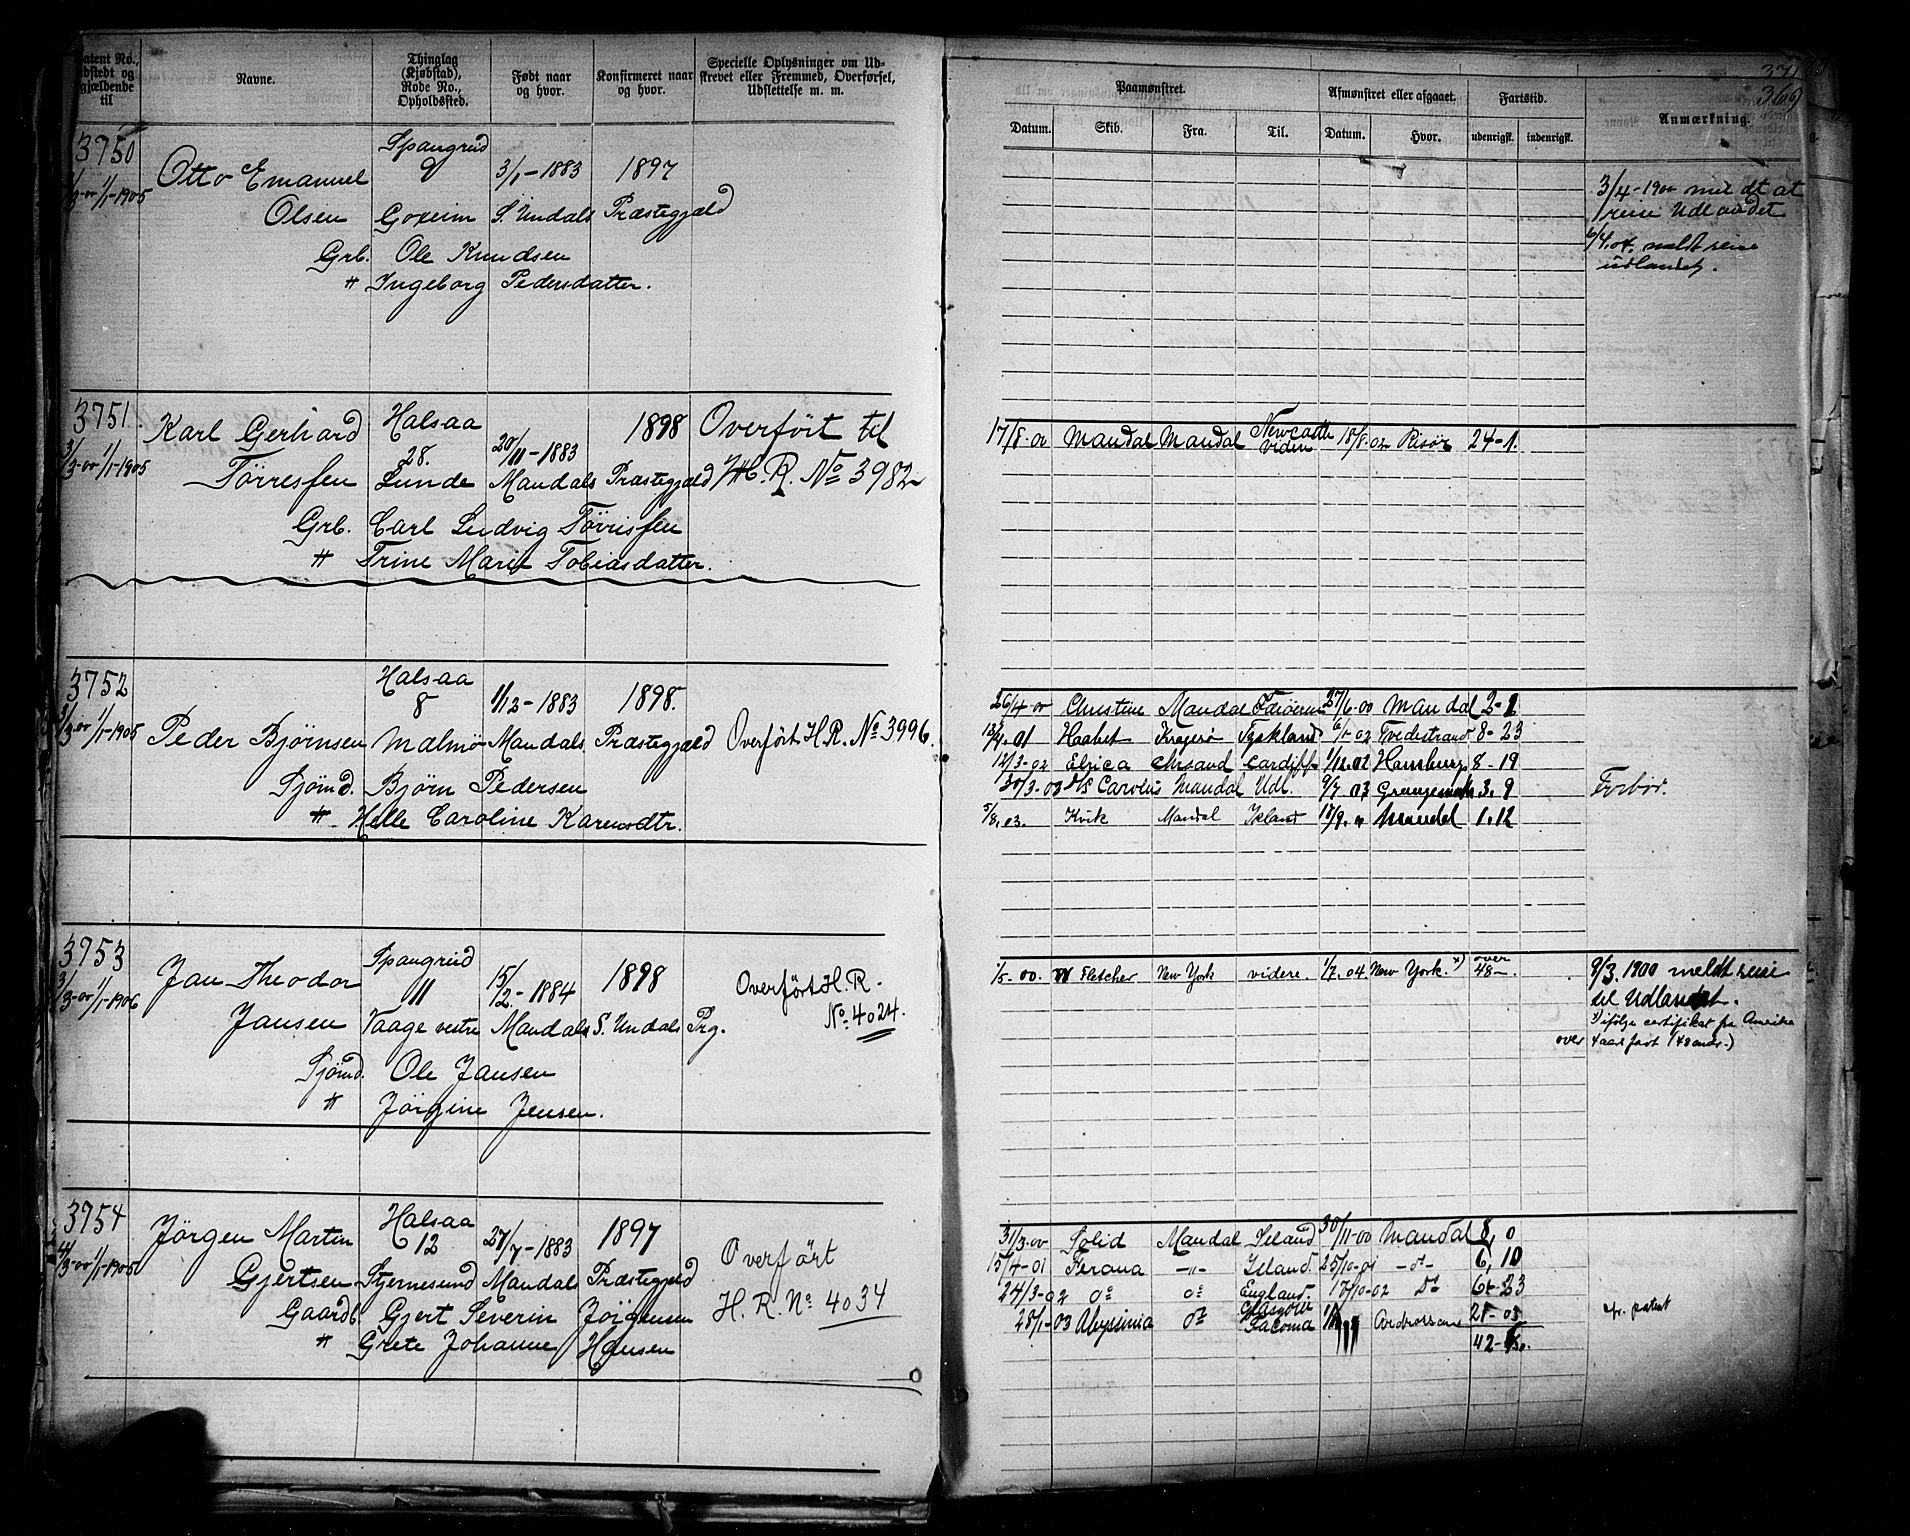 Patent No., udstedt og gjældende til
Navne.
Thinglag (Kjøbstad), Rode No., Opholdssted.
Født naar og hvor.
Konfirmeret naar og hvor.
Specielle Oplysninger om Udskrevet eller Fremmed, Overførsel, Udslettelse m. m.
Paamønstret.
Afmønstret eller afgaaet.
Fartstid.
Anmærkning.
Datum. Skib. Fra. Til. Datum. Hvor. udenrigsk. indenrigsk.
369
3750 Spangreid
Otto Emanuel 9 3/1-1883 1897
1/1-1905
Olsen S. Undals Præstegjæld
Grb. Ole Knudsen
" Ingeborg Pedersdatter.
3/4-1900 meldt at
reise Udlandet
6/4.04. meldt reise
udlandet.
3751. Halsaa
Karl Gerhard 28. 20/11-1883 1898 Overført til
3/3-00 1/1-1905
Tørresen Lunde Mandals Præstegjæld H.R. No 3982
Grb. Carl Ludvig Tørrisen
" Trine Marie Tobiasdatter.
17/8-01 Mandal Mandal Newcastle videre 18/8-02 Risør 24-1.
3752 Halsaa
8 1/12-1883 1898.
3/3-00 1/1-1905
Peder Bjørnsen Malmø Mandals Præstegjæld Overført H.R. No 3996.
Sjømd. Bjørn Pedersen
" Helle Caroline Karensdtr.
26/4-00 Christine Mandal 27/6-00 Mandal 2-1
Haabet Kragerø Tyskland 6/1-02 Tvedestrand 8-23
12/3-02 Elvica Chrsand Cardiff 1/12.02 Hamburg 8-19
30/3-03 D/S Carolus Mandal Udl. 9/7 03 Grangemoth 3.9
5/8.03. Kvik Mandal Island Mandal 1.12
Forbør.
3753 Spangreid
Jan Theodor 11 15/2-1884 1898 Overført H.R.
3/3-00 1/1-1906
Jansen Vaage vestre Mandals S. Undals Prg. No. 4024.
Sjømd. Ole Jansen
" Jørgine Jensen.
1/5-00. Fletcher New York videre. 1/7.04 New York. x) over 48-.
9/3.1900 meldt reise
til Udlandet.
x) ifølge certifikat fra Amerika
over 4 aars fart (48 mdr.)
3754 Halsaa
Jørgen Martin 12 27/7-1883 1897 Overført
1/1-1905
Gjertsen Stjernesund Mandals Præstegjeld H.R. No 4034
Gaardb. Gjert Severin Jørgensen
" Grete Johanne Hansen
31/3-00 Solid Mandal Island 30/11-00 Mandal 8,0
15/4-01 Ferona -"- Island. 25/10-01 -d-. 6,10
24/3-02 do do England. 17/10-02 Do 6-23
28/1-03 Abyssinia do Glasgow Tacoma Ardrossan 21-03
42-6